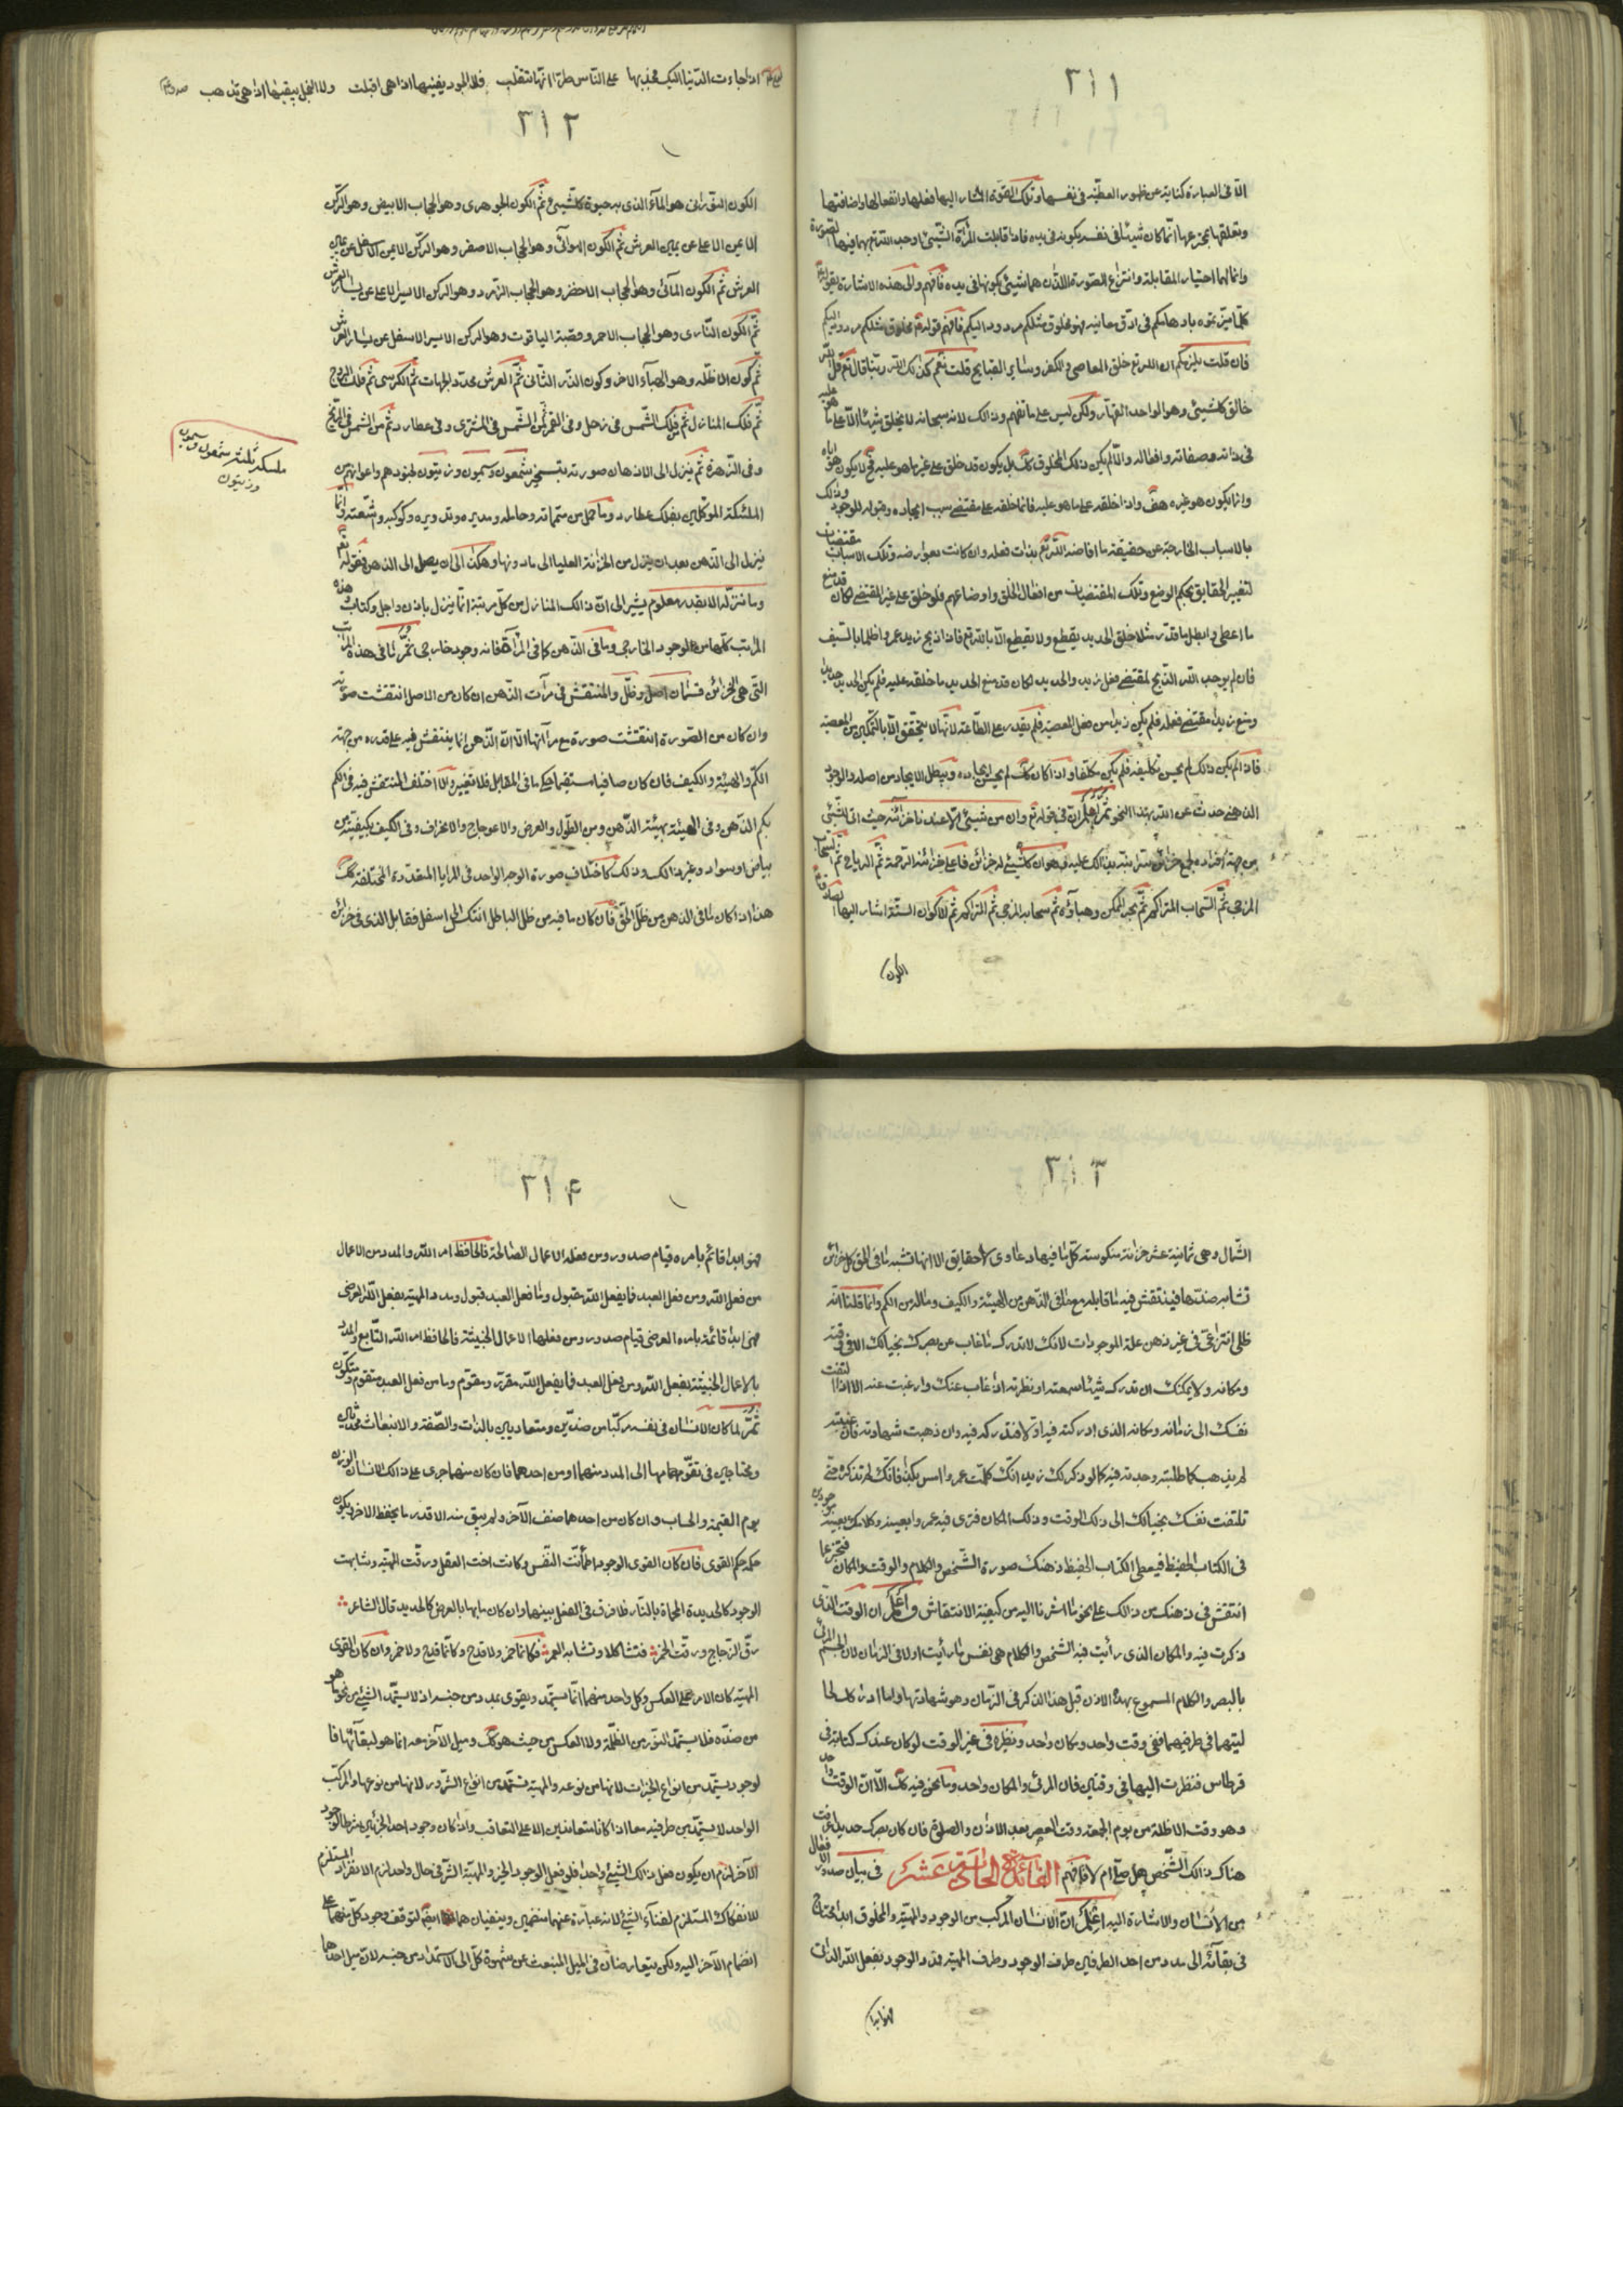 ٣١١
الّا فى العبارة كناية عن ظهور العطيّة فى نفسها وتلك القوّة المشار اليها فعلها وانفعالها واضافتها
وتعلقها بمخترعها انّما كان شيئا فى نفسه بكونه فى يده فاذا قابلت المرآة الشيئ اوجد اللّه تع بهما فيها الصورة
وانما لهما اختيار المقابلة وانتزاع الصورة اللذان هما شيئ بكونهما فى يده فافهم والى هذه الاشارة بقوله ع
كلما ميّزتموه باوهامكم فى ادقّ معانيه فهو مخلوق مثلكم مردود اليكم فافهم قوله ع مخلوق مثلكم مردود اليكم
فان قلت يلزمكم ان اللّه تع خلق المعاصى والكفر وسائر القبايح قلت نعم كذلك اللّه ربّنا قال تع قل اللّه
خالق كلشيئ وهو الواحد القهّار ولكن ليس على ما تفهم وذلك لانه سبحانه لا يخلق شيئا الّا على ما هو عليه
فى ذاته وصفاته وافعاله والّا لم يكن ذلك المخلوق كك بل يكون قد خلق على غير ما هو عليه فح لا يكون هو اياه
وانما يكون هو غيره هف واذا خلقه على ما هو عليه فانما خلقه على مقتضى سبب ايجاده وقبوله للوجود وذلك
بالاسباب الخارجة عن حقيقته ما افاضه اللّه تع بذات فعله وان كانت بعوارضه وتلك الاسباب مقتضيات
لتغيير الحقايق بحكم الوضع وتلك المقتضيات من افعال الخلق واوضاعهم فلو خلق على غير المقتضى لكان قد منع
ما اعطى وابطل ما قدّر مثلا خلق الحديد يقطع ولا يقطع الّا باللّه تع فاذا ذبح زيد عمروا ظلما بالسيف
فان لم يوجد اللّه الذبح لمقتضى فعل زيد والحديد لكان قد منع الحديد ما خلقه عليه فلم يكن الحديد حديدا
ومنع زيدا مقتضى فعله فلم يكن زيدا من فعل المعصية فلم يقدر على الطاعة لانها لا يتحقق الّا بالتمكين من المعصية
فاذا لم يكن ذلك لم يحسن تكليفه فلم يكن مكلفا واذا كان كك لم يحسن ايجاده وبطل الايجاد من اصله والوجود
الذهنى حدث عن اللّه بهذا النحو ثم اعلم ان فى قوله تع وان من شيئى الّا عندنا خزائنه حيث اتى للشيئ
من جهة افراده بجمع خزائن منه ابته بذلك عليه وهو ان كلشيئ له خزائن فاعلى خزائنه الرحمة ثم الرياح ثم السحاب
المزجى ثم السحاب المتراكم ثم بحر الممكن وهباؤه ثم سحابه المزجى ثم المتراكم ثم الاكوان الستة اشار اليها الصادق ع
الكون
اذا جاءت الدّنيا اليك فجد بها على النّاس طرّا انّها تتقلّب فلا الجود يفنيها اذا هى اقبلت ولا البخل يبقيها اذا هى تذهب
٣١٢
الكون النورانى هو الماء الذى به حيوة كلشيئ ثم الكون الجوهرى وهو الحجاب الابيض وهو الركن
الايمن الاعلى عن يمين العرش ثم الكون الهوائى وهو الحجاب الاصفر وهو الركن الايمن الاسفل عن يمين
العرش ثم الكون المائى وهو الحجاب الاخضر وهو الحجاب الزمرد وهو الركن الايسر الاعلى عن يسار العرش
ثم الكون النارى وهو الحجاب الاحمر وقصبة الياقوت وهو الركن الايسر الاسفل عن يسار العرش
ثم كون الاظلة وهو الهباء الاخر وكون الذر الثانى ثم العرش محدد الجهات ثم الكرسى ثم فلك البروج
ثم فلك المنازل ثم فلك الشمس فى زحل وفى القمر ثم من الشمس فى المشترى وفى عطارد ثم من الشمس فى المريخ
وفى الزهرة ثم ينزل الى الاذهان صورته بتسخير شمعون وسيمون وزيتون لجنودهم واعوانهم من
الملئكة الموكلين بفلك عطارد وما حمل من متمماته وحامله ومديره وتدويره وكوكبه واشعته وانما
ينزل الى الذهن بعد ان ينزل من الخزانة العليا الى ما دونها وهكذا الى ان يصل الى الذهن فقوله تع
وما ننزله الا بقدر معلوم يشير الى ان ذلك المنازل من كل مرتبة انما ينزل باذن واجل وكتاب وهذه
المراتب كلها من الوجود الخارجى وما فى الذهن كما فى المرآة فانه وجود خارجى ثم ما فى هذه المراتب
التى هى الخزائن قسمان اصل وظلّ والمنتقش فى مرآت الذهن ان كان من الاصل انتقشت صورته
وان كان من الصورة انتقشت صورة مع مرآتها الّا ان الذهن انما ينتقش فيه على قدره من جهة
الكمّ والهيئة والكيف فان كان صافيا مستقيما حكى ما فى المقابل فلا تغيير والّا اختلف المنتقش فيه فى الكم
بكم الذهن وفى الهيئة بهيئة الذهن ومن الطول والعرض والاعوجاج والانحراف وفى الكيف بكيفيته من
بياض او سواد وغير ذلك وذلك كاختلاف صورة الوجه الواحد فى المرايا المتعددة المختلفة كك
هذا اذا كان ما فى الذهن من ظلّ الحق فان كان ما فيه من ظل الباطل انتكس الى اسفل فقابل الذى فى خزائن
ملئكة ثلثة شمعون وسيمون
وزيتون
٣١٣
الشمال وهى ثمانية عشر خزانة منكوسة كل ما فيها دعاوى لا حقايق الا انها تشبه ما فى الحق كل خزائن
تشابه صنتها فينتقش فيه ما قابله مع ما فى الذهن من الهيئة والكيف وما له من الكم وانما قلنا انه
ظلى انتزاعى فى غير ذهن علة الموجودات لانك لا تدرك ما غاب عن بصرك بخيالك الا فى وقته
ومكانه ولا يمكنك ان تدرك شيئا سمعته او نظرته اذا غاب عنك وارغبت عنه الا اذا التفت
نفسك الى زمانه ومكانه الذى ادركته فيه اولا فتدركه فيه وان ذهبت شهادته فان غيبته
لم يذهب كما طلبته وجدته فيه كما لو ذكر لك زيد انك كلمت عمروا امس بكذا فانك لم تذكره حتى
تلتفت نفسك بخيالك الى ذلك الوقت وذلك المكان فترى فيه عمروا بعينه وكلامك بعينه موجودين
فى الكتاب الحفيظ فيعطى الكتاب الحفيظ ذهنك صورة الشخص والكلام والوقت والمكان فتخبر عما
انتقش فى ذهنك من ذلك على نحو ما اشرنا اليه من كيفية الانتقاش واعلم ان الوقت الذى
ذكرت فيه والمكان الذى رأيت فيه الشخص والكلام هى نفس ما رأيت اولا فى الزمان لان الجسم المرئى
بالبصر والكلام المسموع بهذه الاذن قبل هذا الذكر فى الزمان وهو شهادتها واما ادراك لحا
ليتهما فى طرفيهما ففى وقت واحد ومكان واحد ونظيره فى غير الوقت لو كان عندك كتابة فى
قرطاس فنظرت اليها فى وقتين فان المرئى والمكان واحد وما نحن فيه كك الّا ان الوقت واحد
وهو وقت الاظلة من يوم الجمعة وقت العصر بعد الاذان والصلوة فان كان بصرك حديدا عرفت
هناك ذلك الشخص هل صلّى ام لا فافهم الفائدة الحادية عشر فى بيان صدور الافعال
من الانسان والاشارة اليه اعلم ان الانسان المركب من الوجود والمهيّة والمخلوق ابدا محتاج
فى بقائه الى مدد من احد الطرفين طرف الوجود وطرف المهيّة فمدد الوجود بفعل اللّه الذاتى
فهو ابدا
٣١۴
فهو ابدا قائم بامره قيام صدور ومن فعله الاعمال الصالحة فالحافظ امر اللّه والمدد من الاعمال
من فعل اللّه ومن فعل العبد فما بفعل اللّه مقبول وما فعل العبد قبول ومدد المهيّة بفعل اللّه العرضى
فهى ابدا قائمة بامره العرضى قيام صدور ومن فعلها الاعمال الخبيثة فالحافظ امر اللّه التابع والمدد
بالاعمال الخبيثة بفعل اللّه ومن فعل العبد فما بفعل اللّه مقرّر ومقوّم وما من فعل العبد متقوم ومتكون
ثم لما كان الانسان فى نفسه مركبا من ضدين ومتعاديين بالذات والصفة والانبعاث محدثين
ومحتاجين فى تقوّمهما الى المدد منهما او من احدهما فان كان منهما جرى على ذلك الانسان الوزن
يوم القيمة والحساب وان كان من احدهما ضعف الآخر ولم يبق منه الا قدر ما يحفظ الاخر ويكون
حكمه حكم القوى فان كان القوى الوجود اطمأنت النفس وكانت اخت العقل ورقّت المهيّة وشابهت
الوجود كالحديدة المحماة بالنار فلا فرق فى الفعل بينهما وان كان ما بها بالعرض كالحديد قال الشاعر
رقّ الزجاج ورقّت الخمر فتشاكلا وتشابه الامر فكانما خمر ولا قدح وكانما قدح ولا خمر وان كان القوى
المهيّة كان الامر على العكس وكل واحد منهما انما يستمد ويقوى بمدد من جنسه اذ لا يستمد الشيئ من نحو ما هو
من ضده فلا يستمد النور من الظلمة ولا العكس من حيث هو كك وميل الآخر معه انما هو لبقائهما فا
لوجود يستمد من انواع الخيرات لانها من نوعه والمهيّة تستمد من انواع الشرور لانها من نوعها والمركب
الواحد لا يستمد من طرفيه معا اذا كانا متعاندين الا على التعاقب واذا كان وجود احد الجزئين شرطا لوجود
الآخر لزم ان يكون فعل ذلك الشيئ واحدا فلو فعل الوجود الخير والمهيّة الشر فى حال واحد لزم الانفراد المستلزم
للانفكاك المستلزم لفناء الشيئ لانه عبارة عنهما منضمين وينفيان هما ايضا لتوقف وجود كل منهما على
انضمام الآخر اليه ولكن يتعارضان فى الميل المنبعث عن شهوة كل الى الاستمداد من جنسه لان ميل احدهما